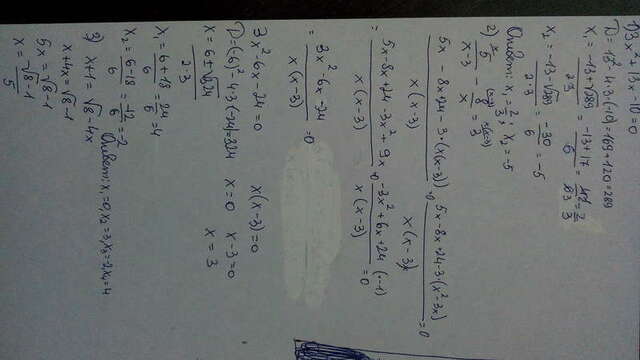 1) 3x² + 13x - 10 = 0
D = 13² - 4·3·(-10) = 169 + 120 = 289
x₁ = (-13+√289)/(2·3) = (-13+17)/6 = 4/6 = 2/3
x₂ = (-13-√289)/(2·3) = -30/6 = -5
Ответ: x₁ = 2/3; x₂ = -5
2) 5/(x-3) - 8/x = 3
(5x - 8x + 24 - 3·(x(x-3)))/(x(x-3)) = 0 (5x - 8x + 24 - 3·(x²-3x))/(x(x-3)) = 0
= (5x - 8x + 24 - 3x² + 9x)/(x(x-3)) = 0 (-3x² + 6x + 24)/(x(x-3)) = 0 (·-1)
= (3x² - 6x - 24)/(x(x-3)) = 0
3x² - 6x - 24 = 0 x(x-3) = 0
D = (-6)² - 4·3·(-24) = 324 x = 0 x - 3 = 0
x = (6±√324)/(2·3) x = 3
x₁ = (6+18)/6 = 24/6 = 4
x₂ = (6-18)/6 = -12/6 = -2
Ответ: x₁=0, x₂=3, x₃=-2, x₄=4
3) x + 1 = √8 - 4x
x + 4x = √8 - 1
5x = √8 - 1
x = (√8 - 1)/5